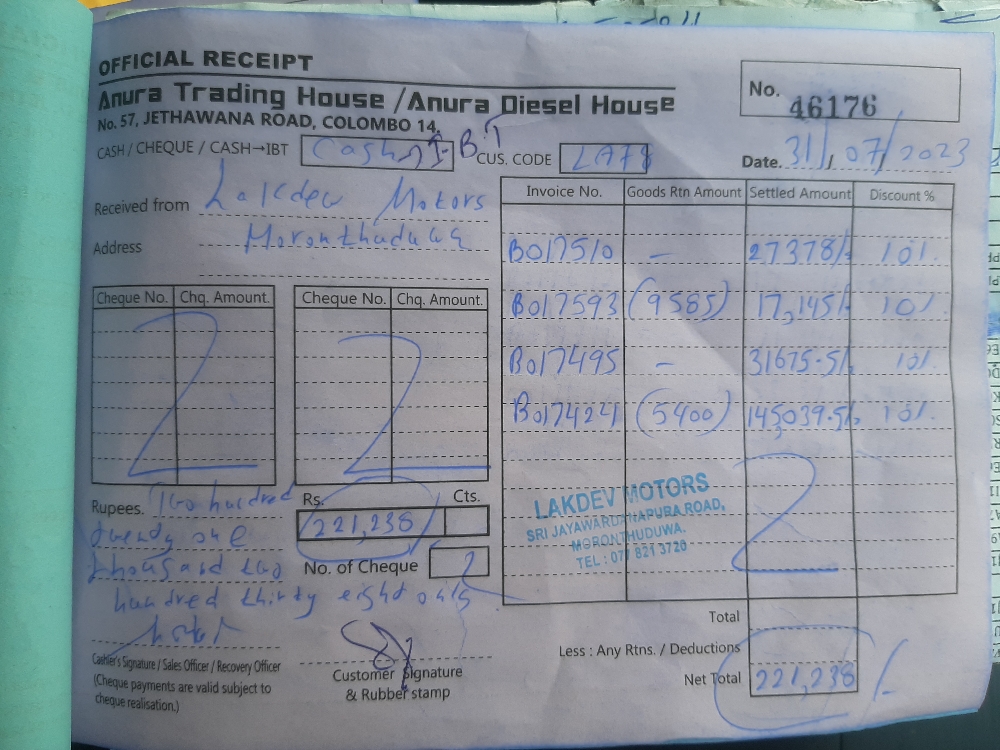 OFFICIAL RECEIPT
Anura Trading House /Anura Diesel House
No. 57, JETHAWANA ROAD, COLOMBO 14.
No. 46176
CASH / CHEQUE / CASH→IBT Cash
CUS. CODE LA78
Date. 31/07/2023
Received from Lakdew Motors
Address Moronthuduwa
Cheque No. Chq. Amount.
Cheque No. Chq. Amount.
Invoice No. Goods Rtn Amount Settled Amount Discount %
B017510 — 27378/- 10%
B017593 (9585) 17,145/- 10%
B017495 — 31675.5/- 10%
B017424 (5400) 145,039.5/- 10%
LAKDEV MOTORS
SRI JAYAWARDANAPURA ROAD,
MORONTHUDUWA.
TEL : 077 821 3726
Rupees. Two hundred
twenty one
thousand two
hundred thirty eight only
Rs. Cts.
221,238/
No. of Cheque
Cashier's Signature / Sales Officer / Recovery Officer
(Cheque payments are valid subject to
cheque realisation.)
Customer Signature
& Rubber stamp
Total
Less : Any Rtns. / Deductions
Net Total 221,238/-